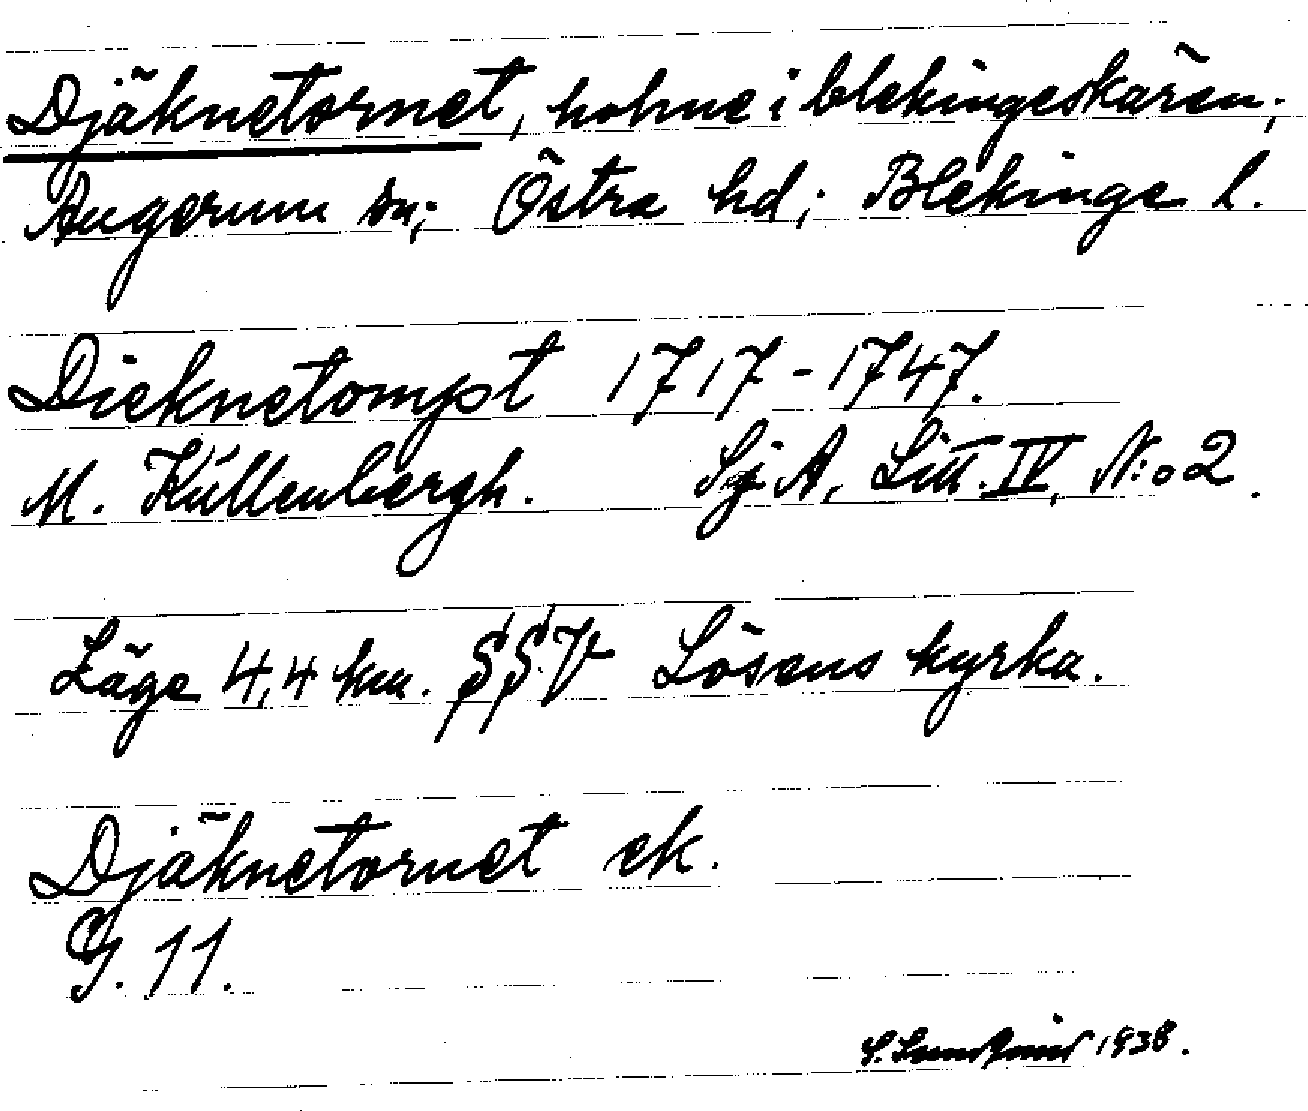 Djäknetornet, holme i blekingeskären;
Augerum sn; Östra hd; Blekinge l.
Dieknetompt 1717-1747.
M. Küllenbergh. Sj A, Litt. IV, N:o 2.
Läge 4,4 km. SSV Lösens kyrka.
Djäknetornet ek.
G. 11.
1938.